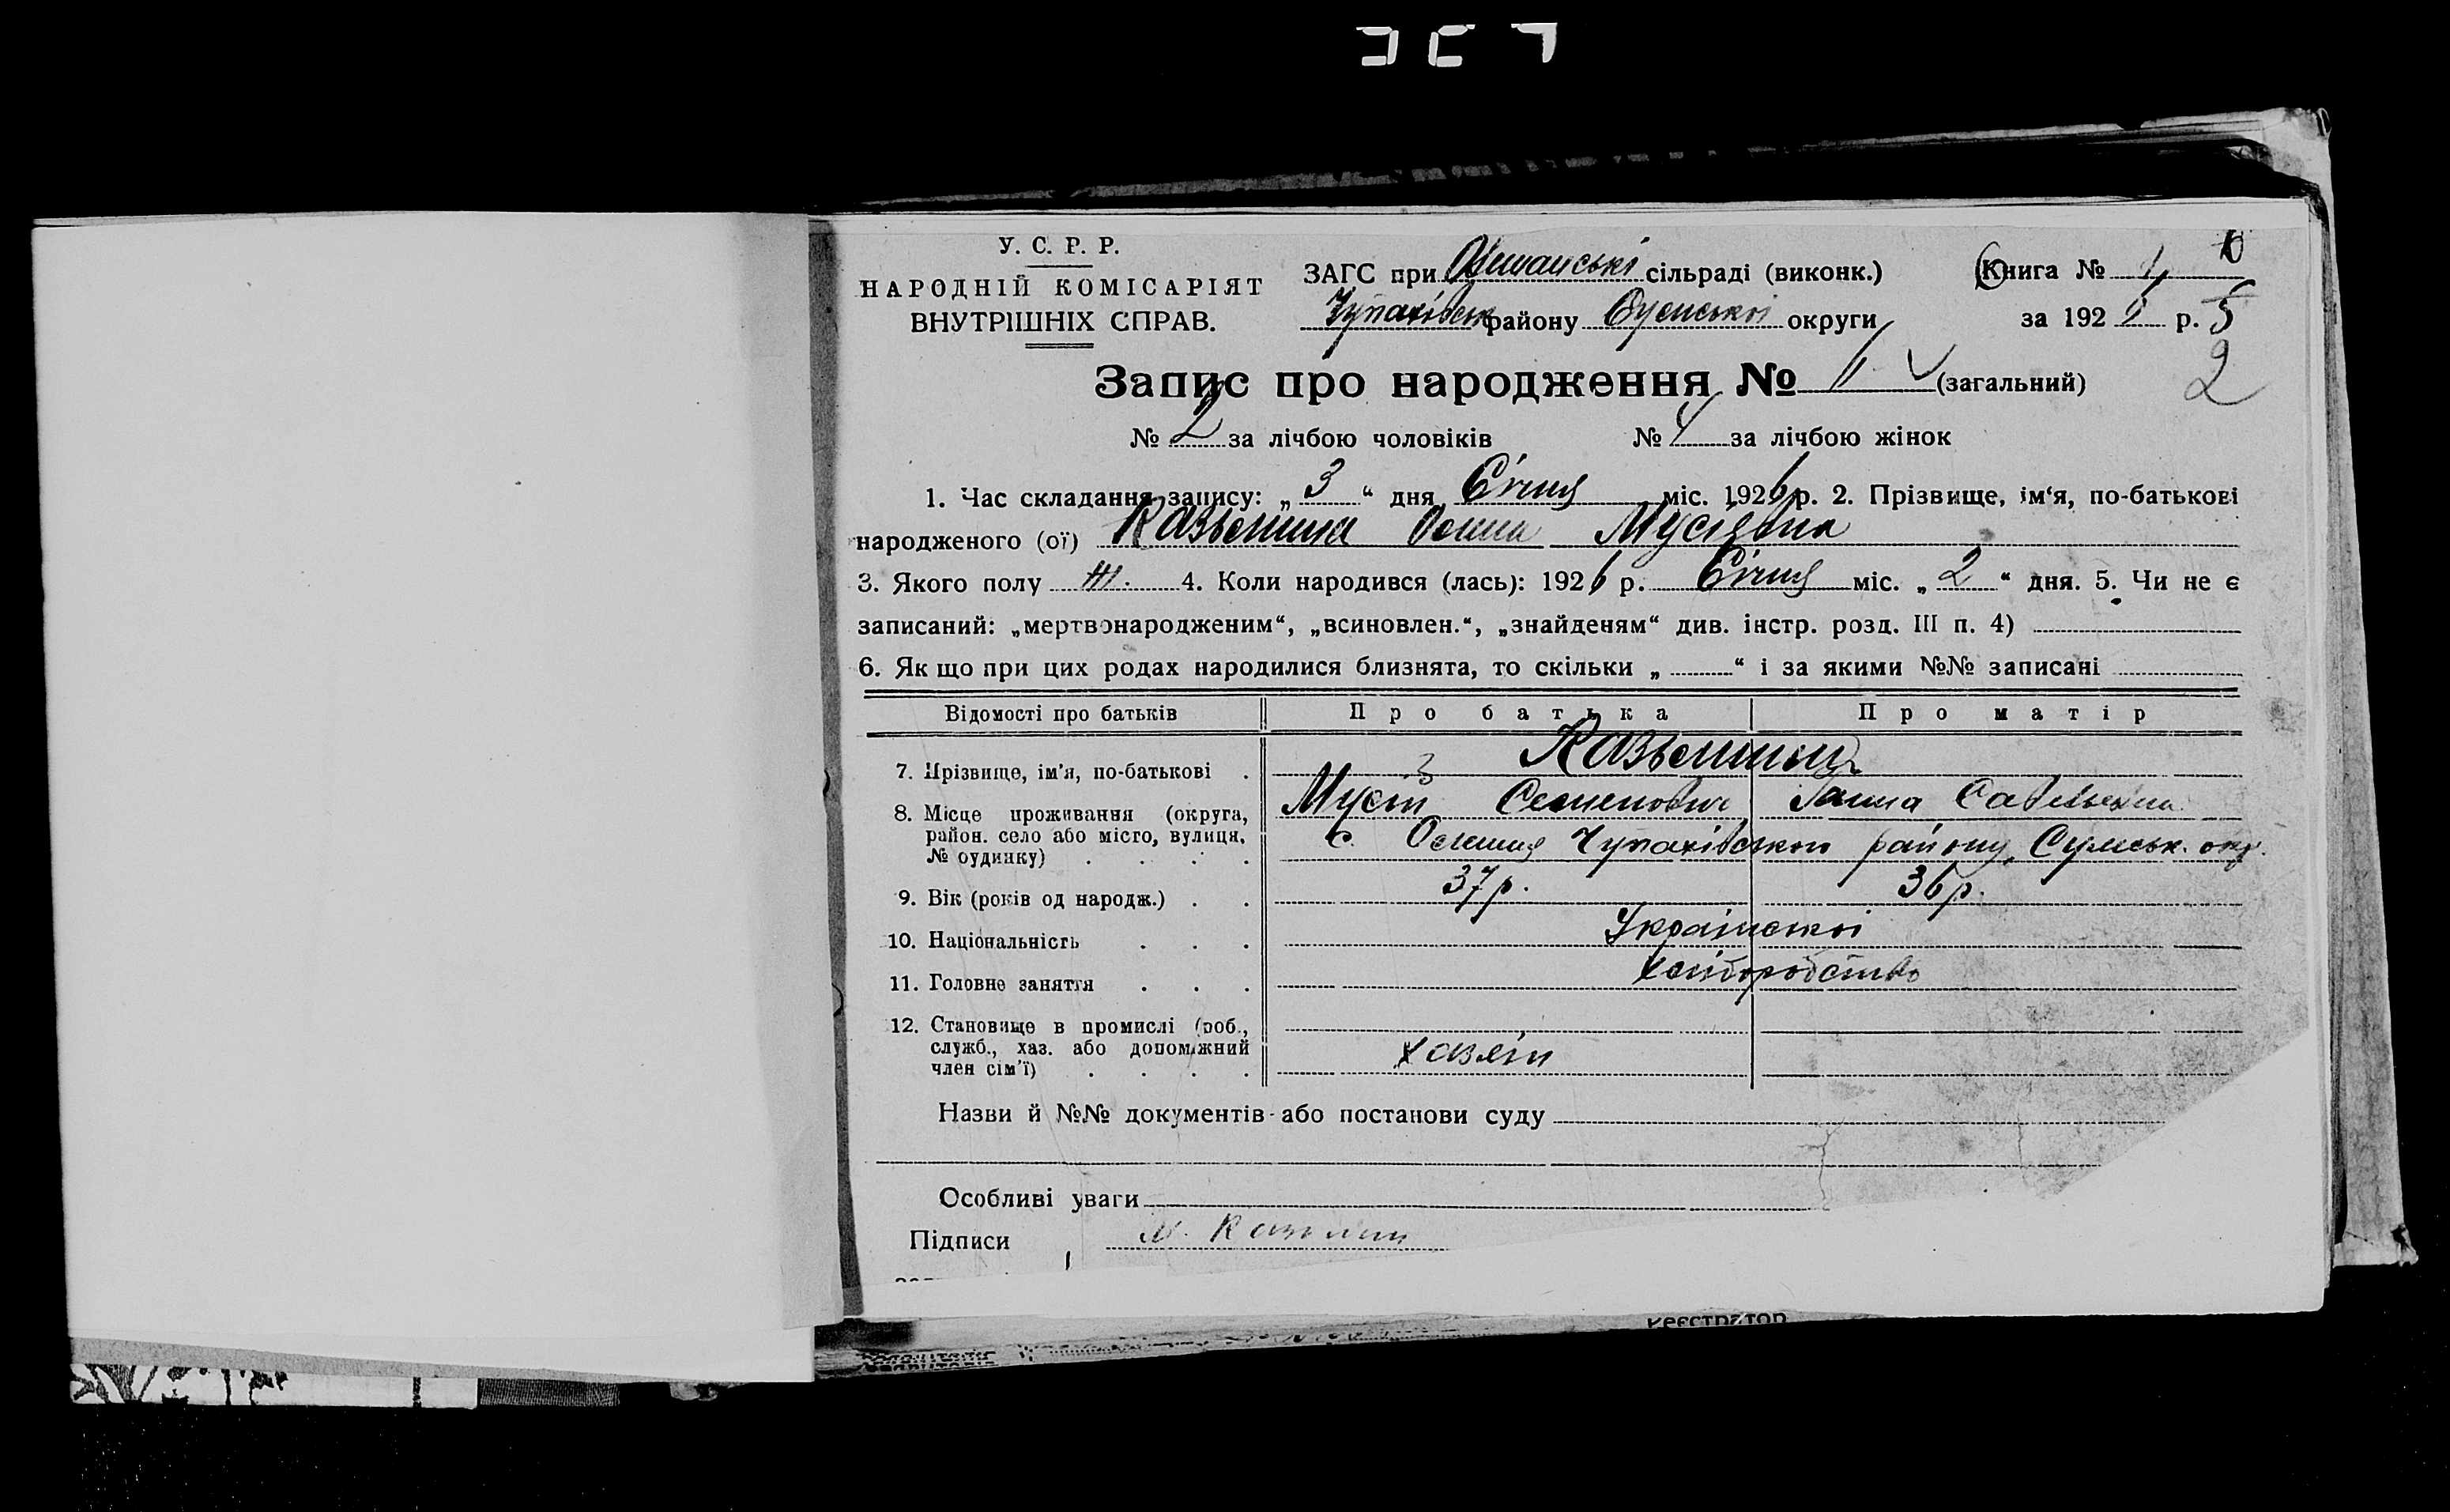 У. С. Р. Р.
НАРОДНІЙ КОМІСАРІЯТ
ВНУТРІШНІХ СПРАВ.
ЗАГС при сільраді (виконк.)
Чупахівськ району Сумської округи
Книга № 1
за 192 р. 5
2
Запис про народження № 1 (загальний)
№ 2 за лічбою чоловіків № за лічбою жінок
1. Час складання запису: „ 3 “ дня Січня міс. 1926 р. 2. Прізвище, ім‘я, по-батькові
народженого (ої) Мусіевна
3. Якого полу 4. Коли народився (лась): 1926 р. Січня міс. „ 2 “ дня. 5. Чи не є
записаний: „мертвонародженим“, „всиновлен.“, „знайденям“ див. інстр. розд. III п. 4)
6. Якщо при цих родах народилися близнята, то скільки „ “ і за якими №№ записані
Відомості про батьків Про батька Про матір
7. Прізвище, ім'я, по-батькові .
Мусій Семенович Ганна Савельевна
8. Місце проживання (округа,
район. село або місто, вулиця,
№ будинку) . . . .
с. Чупахівського району, Сумськ. окр.
9. Вік (років од народж.) . . 37 р. 36 р.
10. Національність . . . Української
11. Головне заняття . . . хліборобство
12. Становище в промислі (роб.,
служб., хаз. або допоміжний
член сім'ї) . . . .
хазяін
Назви й №№ документів або постанови суду
Особливі уваги
Підписи
Реєстратор